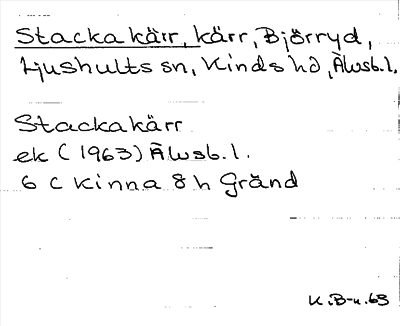 Stackakärr, kärr, Björryd,
Ljushults sn, Kinds hd, Älvsb.l.
Stackakärr
ek (1963) Älvsb.l.
6 C Kinna 8 h Gränd
K.B-n.63